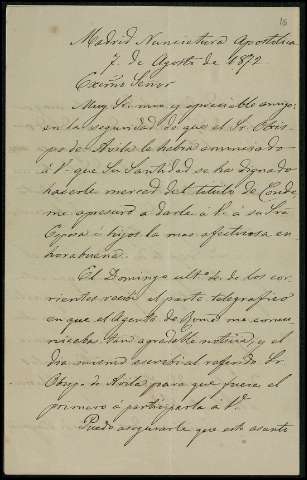 16
Madrid Nunciatura Apostolica
7. de Agosto de 1872.
Excmo Señor
Muy Sr. mio y apreciable amigo
en la seguridad de que el Sr. Obis-
po de Avila le habrá anunciado
á V. que Su Santidad se ha dignado
hacerle merced del titulo de Conde
me apresuro a darle a V. a su Sra
Esposa é hijos la mas afectuosa en
horabuena.
El Domingo ult° 4. de los cor-
rientes recibí el parte telegrafico
en que el Agente de Roma me comu-
nicaba tan agradable noticia, y el
dia mismo escribí al referido Sr.
Obispo de Avila para que fuera el
primero á participarla á V.
Puedo asegurarle que este asunto